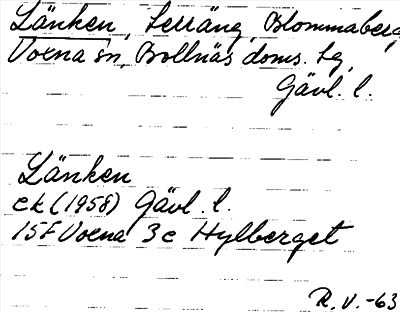 Länken, Terräng, Blommaberg,
Voxna sn, Bollnäs doms. tg,
Gävl. l.
Länken
ek (1958) Gävl. l.
15F Voxna 3c Hylberget
R.V.-63